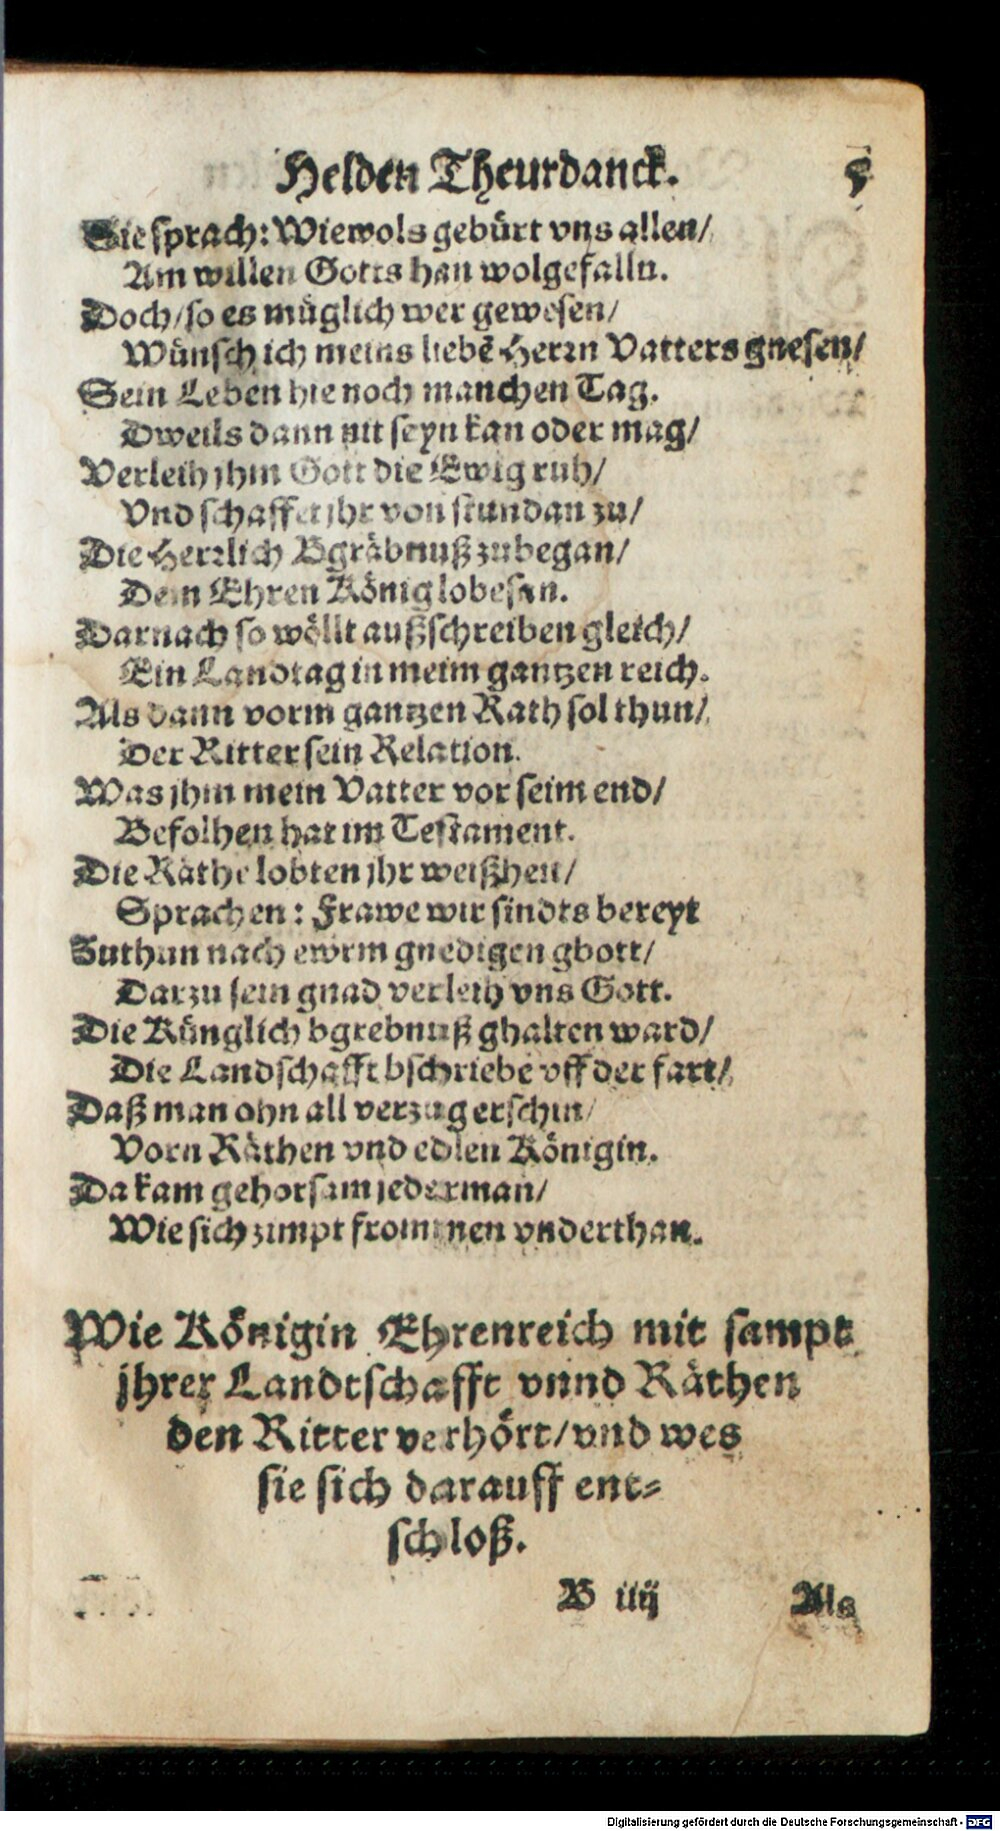 Helden Theurdanck. 5
Sie sprach: Wiewols gebürt vns allen/
Am willen Gotts han wolgefalln.
Doch/so es müglich wer gewesen/
Wünsch ich meins liebē Herrn Vatters gnesen/
Sein Leben hie noch manchen Tag.
Dweils dann nit seyn kan oder mag/
Verleih jhm Gott die Ewig ruh/
Vnd schaffet jhr von stundan zu/
Die Herrlich Bgräbnuß zubegan/
Dem Ehren König lobesan.
Darnach so wöllt außschreiben gleich/
Ein Landtag in meim gantzen reich.
Als dann vorm gantzen Rath sol thun/
Der Ritter sein Relation.
Was jhm mein Vatter vor seim end/
Befolhen hat im Testament.
Die Räthe lobten jhr weißheit/
Sprachen: Frawe wir sindts bereyt
Zuthun nach ewrm gnedigen gbott/
Darzu sein gnad verleih vns Gott.
Die Künglich bgrebnuß ghalten ward/
Die Landschafft bschriebē vff der fart/
Daß man ohn all verzug erschin/
Vorn Räthen vnd edlen Königin.
Da kam gehorsam jederman/
Wie sich zimpt frommen vnderthan.
Wie Königin Ehrenreich mit sampt
jhrer Landtschafft vnnd Räthen
den Ritter verhört/vnd wes
sie sich darauff ent⸗
schloß.
B iiij Als
Digitalisierung gefördert durch die Deutsche Forschungsgemeinschaft - DFG